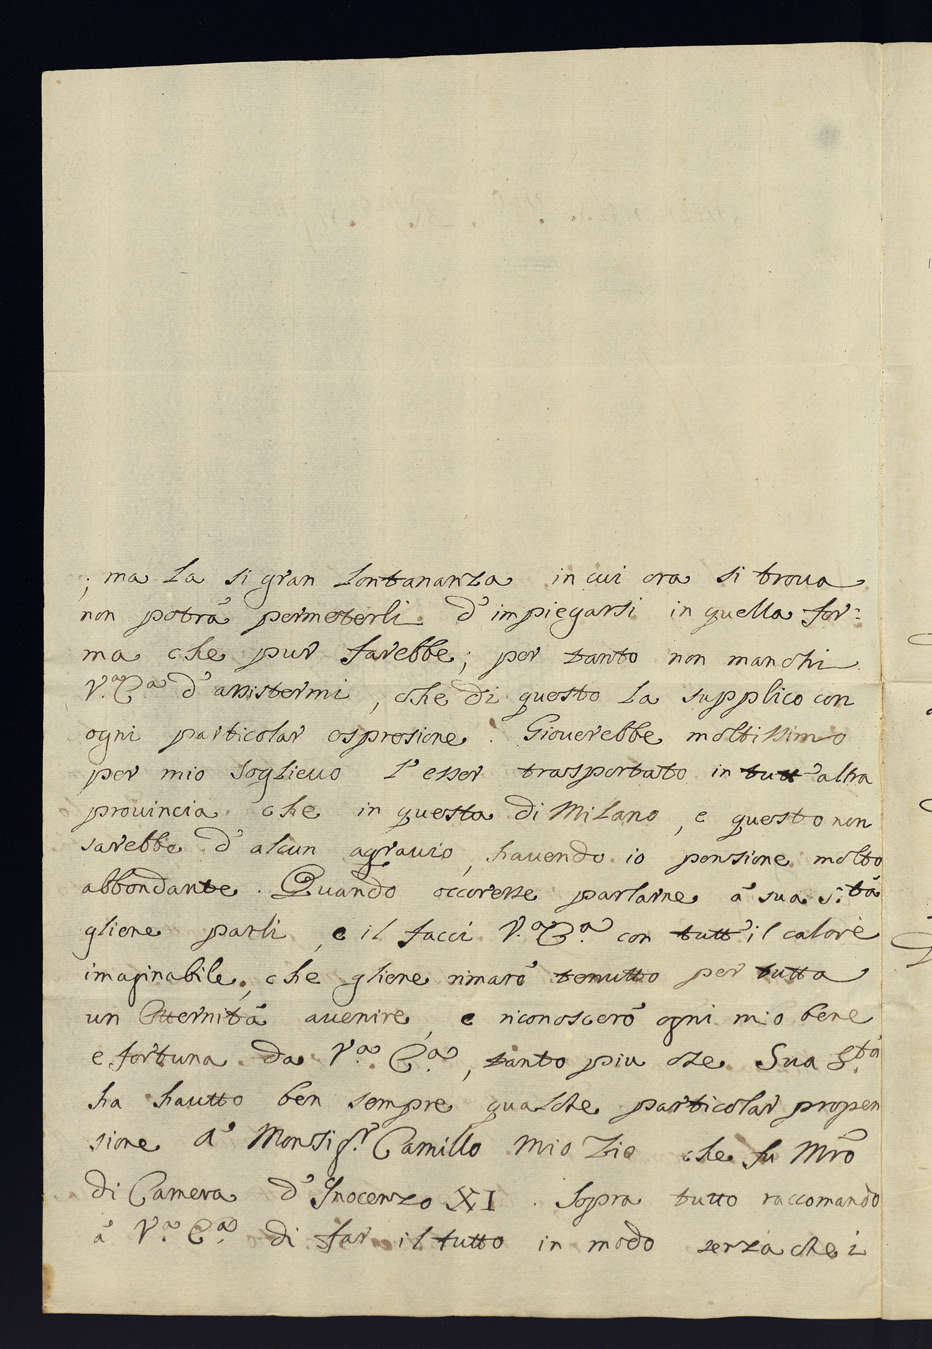 ; ma la si gran lontananza in cui ora si troua
non potrà permeterli d'impiegarsi in quella for=
ma che pur farebbe; per tanto non manchi
V.ª E.ª d'assistermi, che di questo la supplico con
ogni particolar espresione. Giouerebbe moltissimo
per mio soglieuo l'esser trasportato in tutt'altra
prouincia che in questa di Milano, e questo non
sarebbe d'alcun agrauio, hauendo io pensione molto
abbondante. Quando occoresse parlarne à sua S.tà
gliene parli, e il facci V.ª E.ª con tutt'il calore
imaginabile, che gliene rimarò tenutto per tutta
un Etternità auenire, e riconoscerò ogni mio bene
e fortuna da V.ª E.ª, tanto piu che Sua S.tà
ha hautto ben sempre qualche particolar propen
sione à Monsig.r Camillo mio Zio che fu Mrõ
di Camera d'Inocenzo XI. Sopra tutto raccomando
à V.ª E.ª di far il tutto in modo senza che i